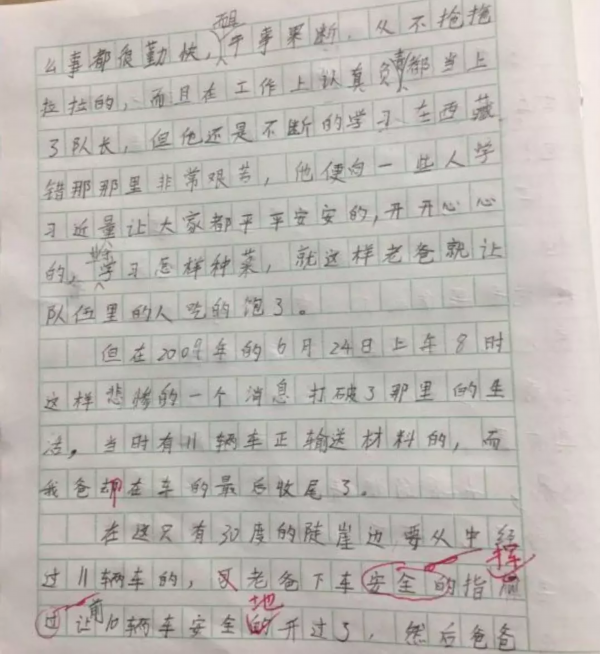 么事都很勤快,而且干事果断,从不拖拖
拉拉的,而且在工作上认真负责都当上
了队长,但他还是不断的学习在西藏
错那那里非常艰苦,他便向一些人学
习近量让大家都平平安安的,开开心心
的,学习怎样种菜,就这样老爸就让
队伍里的人吃的饱了。
但在2009年的6月24日上午8时
这样悲惨的一个消息打破了那里的生
活,当时有11辆车正输送材料的,而
我爸却在车的最后收尾了。
在这只有30度的陡崖边要从中经
过11辆车的,老爸下车安全的指挥
过让前10辆车安全的地开过了,然后爸爸